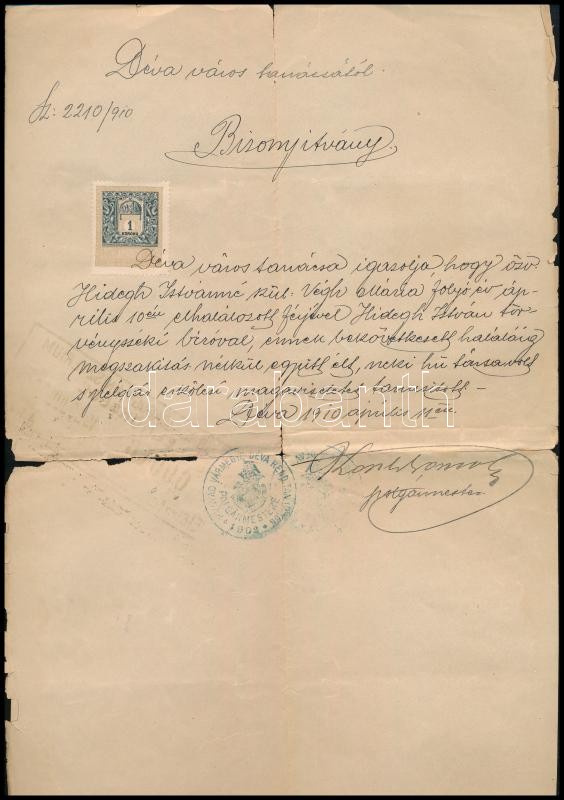 Déva város tanácsától.
Sz: 2210/910
Bizonyitvány
1
KORONA
Déva város tanácsa igazolja, hogy özv.
Hidegh Istvánné szül: Végh Mária folyó év áp-
rilis 10én elhalálozott férjével Hidegh István tör-
vényszéki biróval, ennek bekövetkezett haláláig
megszakitás nélkül együtt élt, neki hű társa volt
s példás erkölcsi magaviseletet tanusitott.-
Déva 1910 április 11én.
polgármester
VÁRMEGYE DÉVA REND. TAN. VÁROS
POLGÁRMESTERE
1902
darabanth